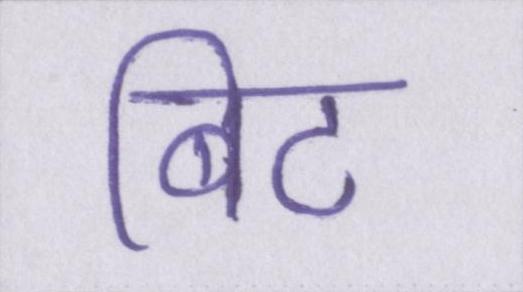 बिट